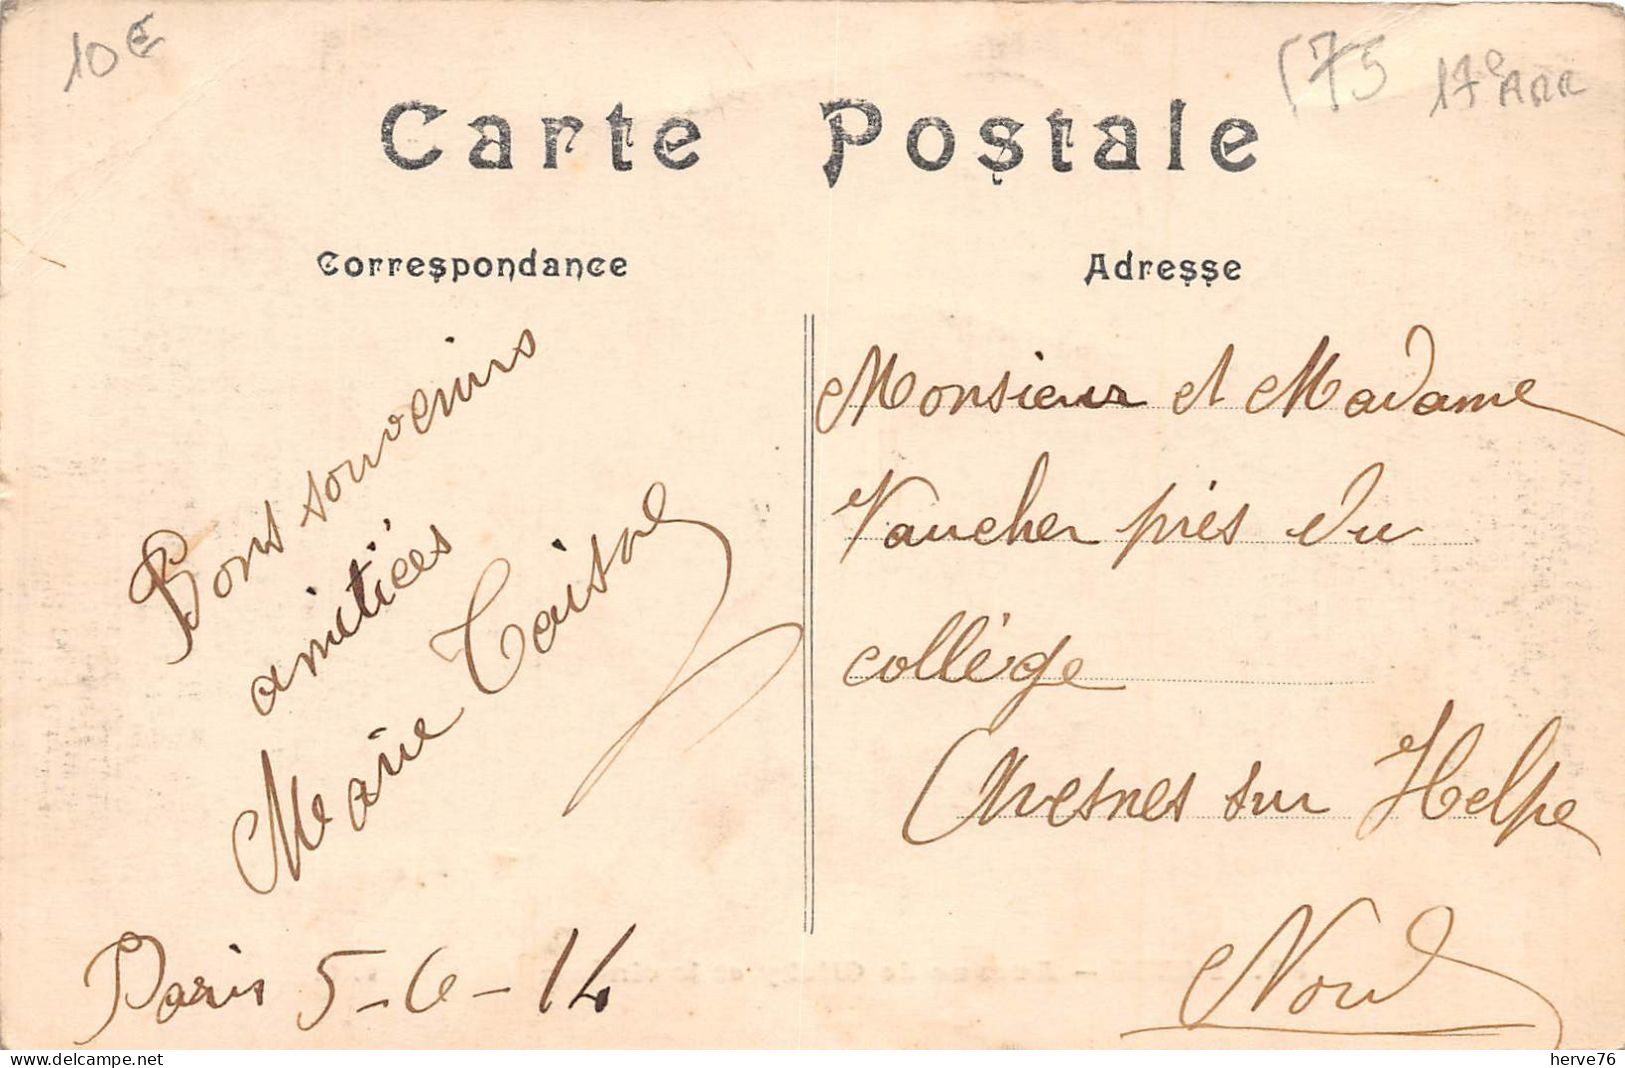 10€
75
17e ARR
Carte Postale
Correspondance
Bons souvenirs
amitiées
Marie Caisne
Paris 5-6-14
Adresse
Monsieur et Madame
Vaucher près du
collège
Avesnes sur Helpe
Nord
herve76